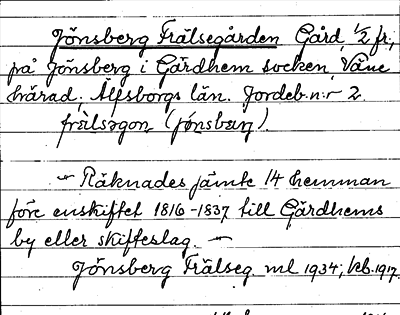 Jönsberg Frälsegården Gård, 1/2 fr.,
på Jönsberg i Gärdhem socken, Väne
härad, Älfsborgs län. Jordeb.n:r 2.
frälsegon (jönsbærj).
– Räknades jämte 14 hemman
före enskiftet 1816-1837 till Gärdhems
by eller skifteslag. –
Jönsberg Frälseg. ml 1934; hb. 1917.